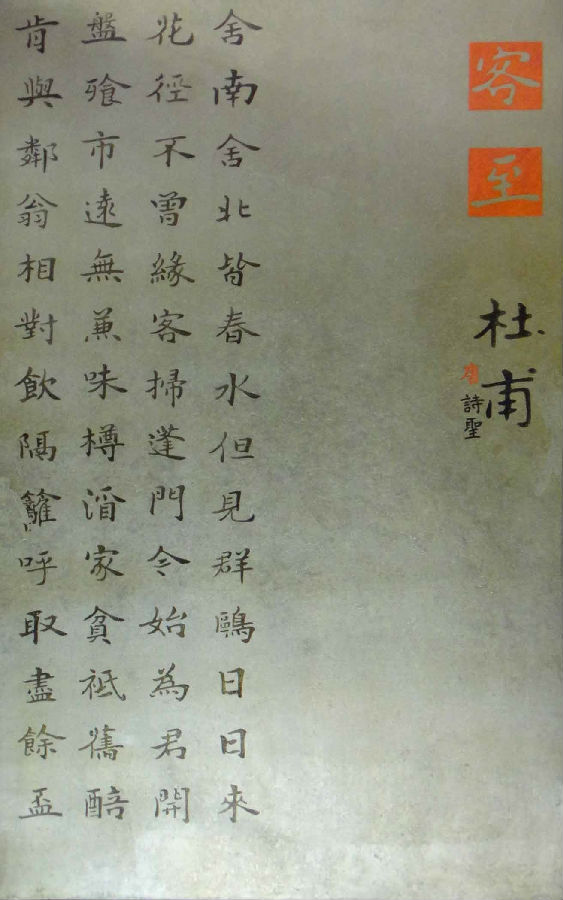 客至
杜甫
唐
詩聖
舍南舍北皆春水但見群鷗日日來
花徑不曾緣客掃蓬門今始為君開
盤飱市遠無兼味樽酒家貧袛舊醅
肯與鄰翁相對飲隔籬呼取盡餘盃